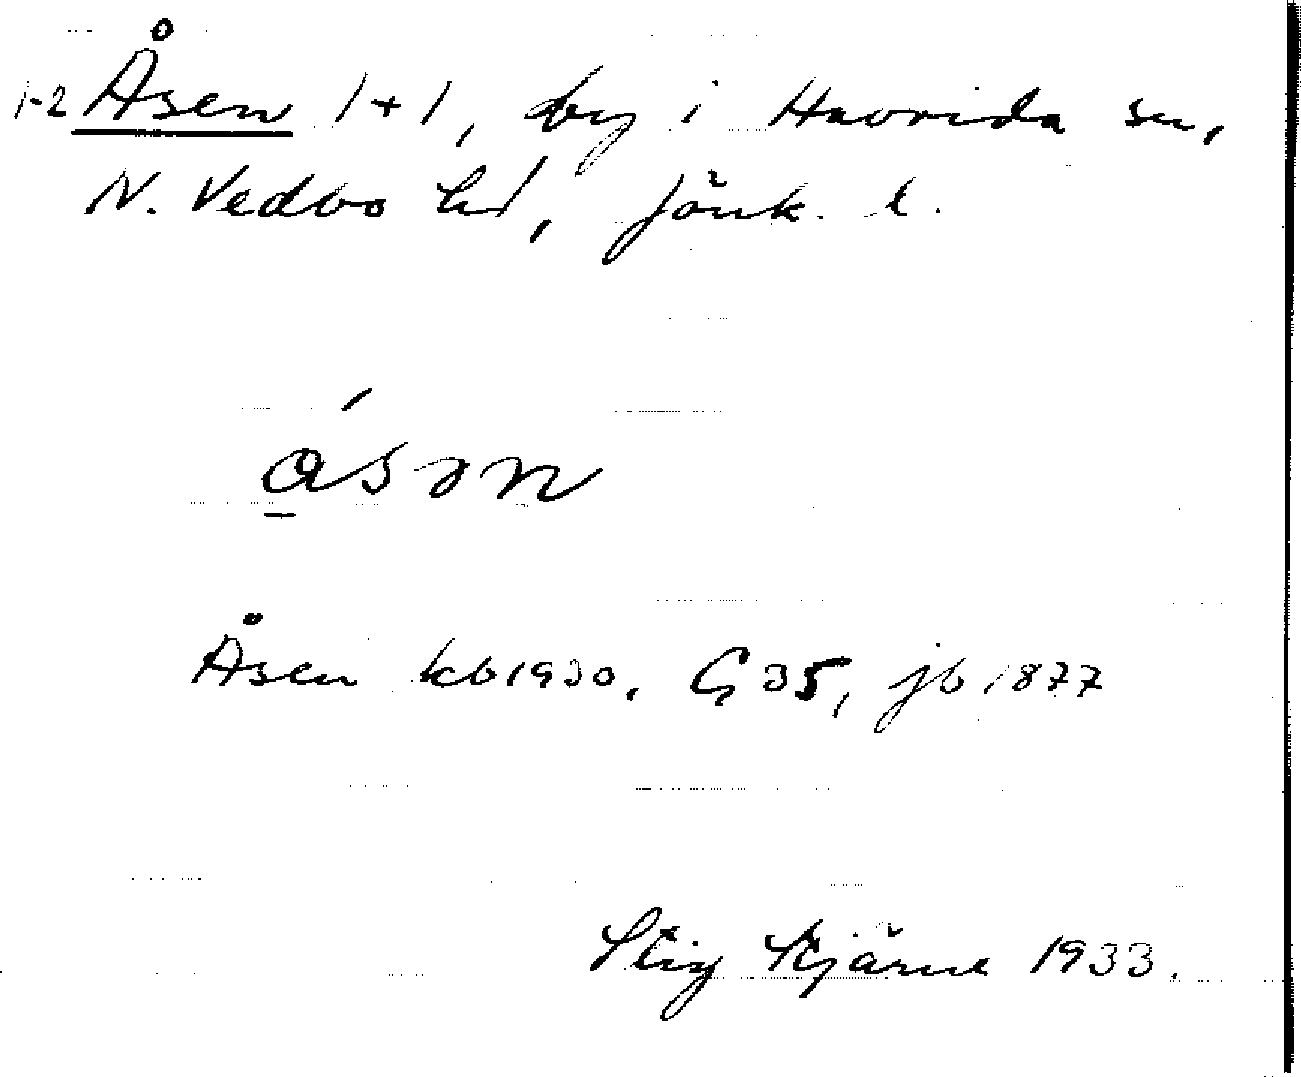 1-2 Åsen 1+1, by i Haurida sn,
N. Vedbo hd, Jönk. l.
a̲´sən
Åsen kb 1930, G 35, jb 1877
Stig Stjärne 1933.